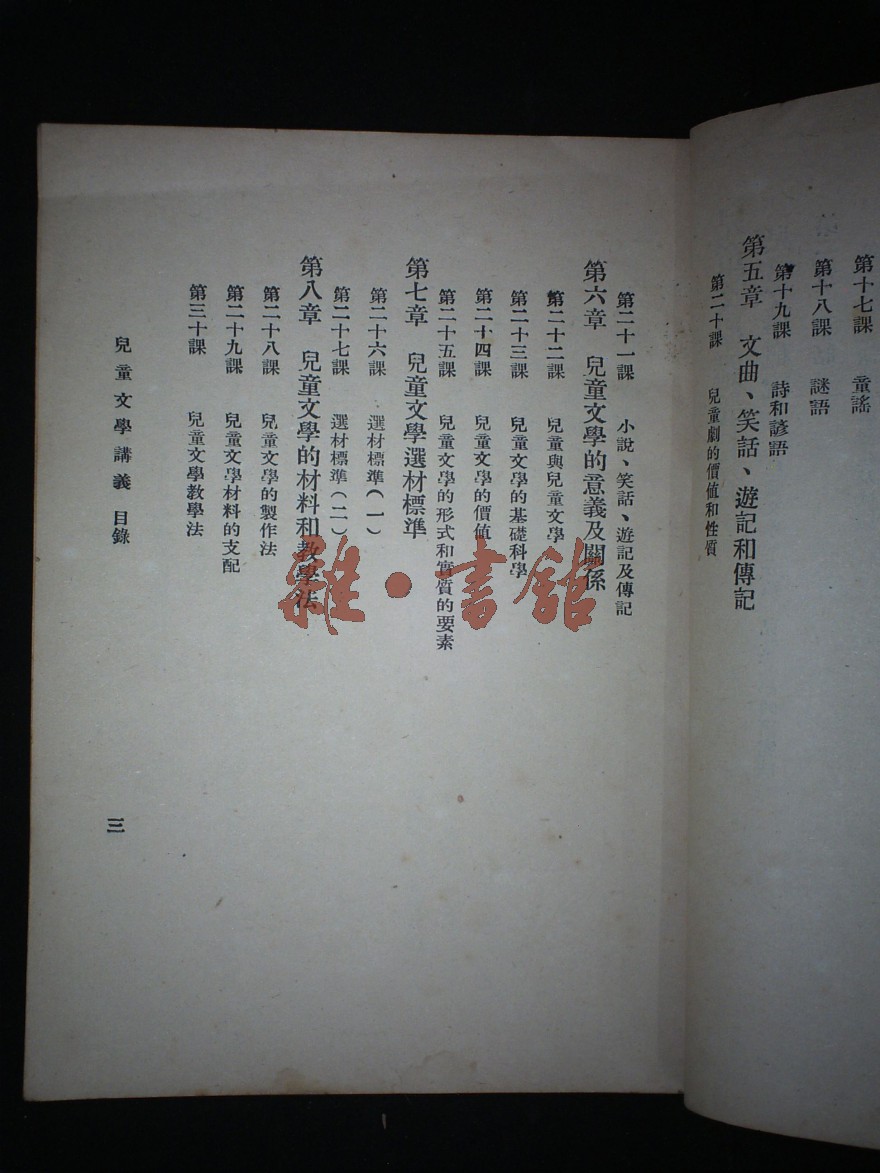 第十七課　童謠
第十八課　謎語
第十九課　詩和諺語
第五章　文曲、笑話、遊記和傳記
第二十課　兒童劇的價值和性質
第二十一課　小說、笑話、遊記及傳記
第六章　兒童文學的意義及關係
第二十二課　兒童與兒童文學
第二十三課　兒童文學的基礎科學
第二十四課　兒童文學的價值
第二十五課　兒童文學的形式和實質的要素
第七章　兒童文學選材標準
第二十六課　選材標準(一)
第二十七課　選材標準(二)
第八章　兒童文學的材料和教學法
第二十八課　兒童文學的製作法
第二十九課　兒童文學材料的支配
第三十課　兒童文學教學法
兒童文學講義　目錄
三
雜·書館